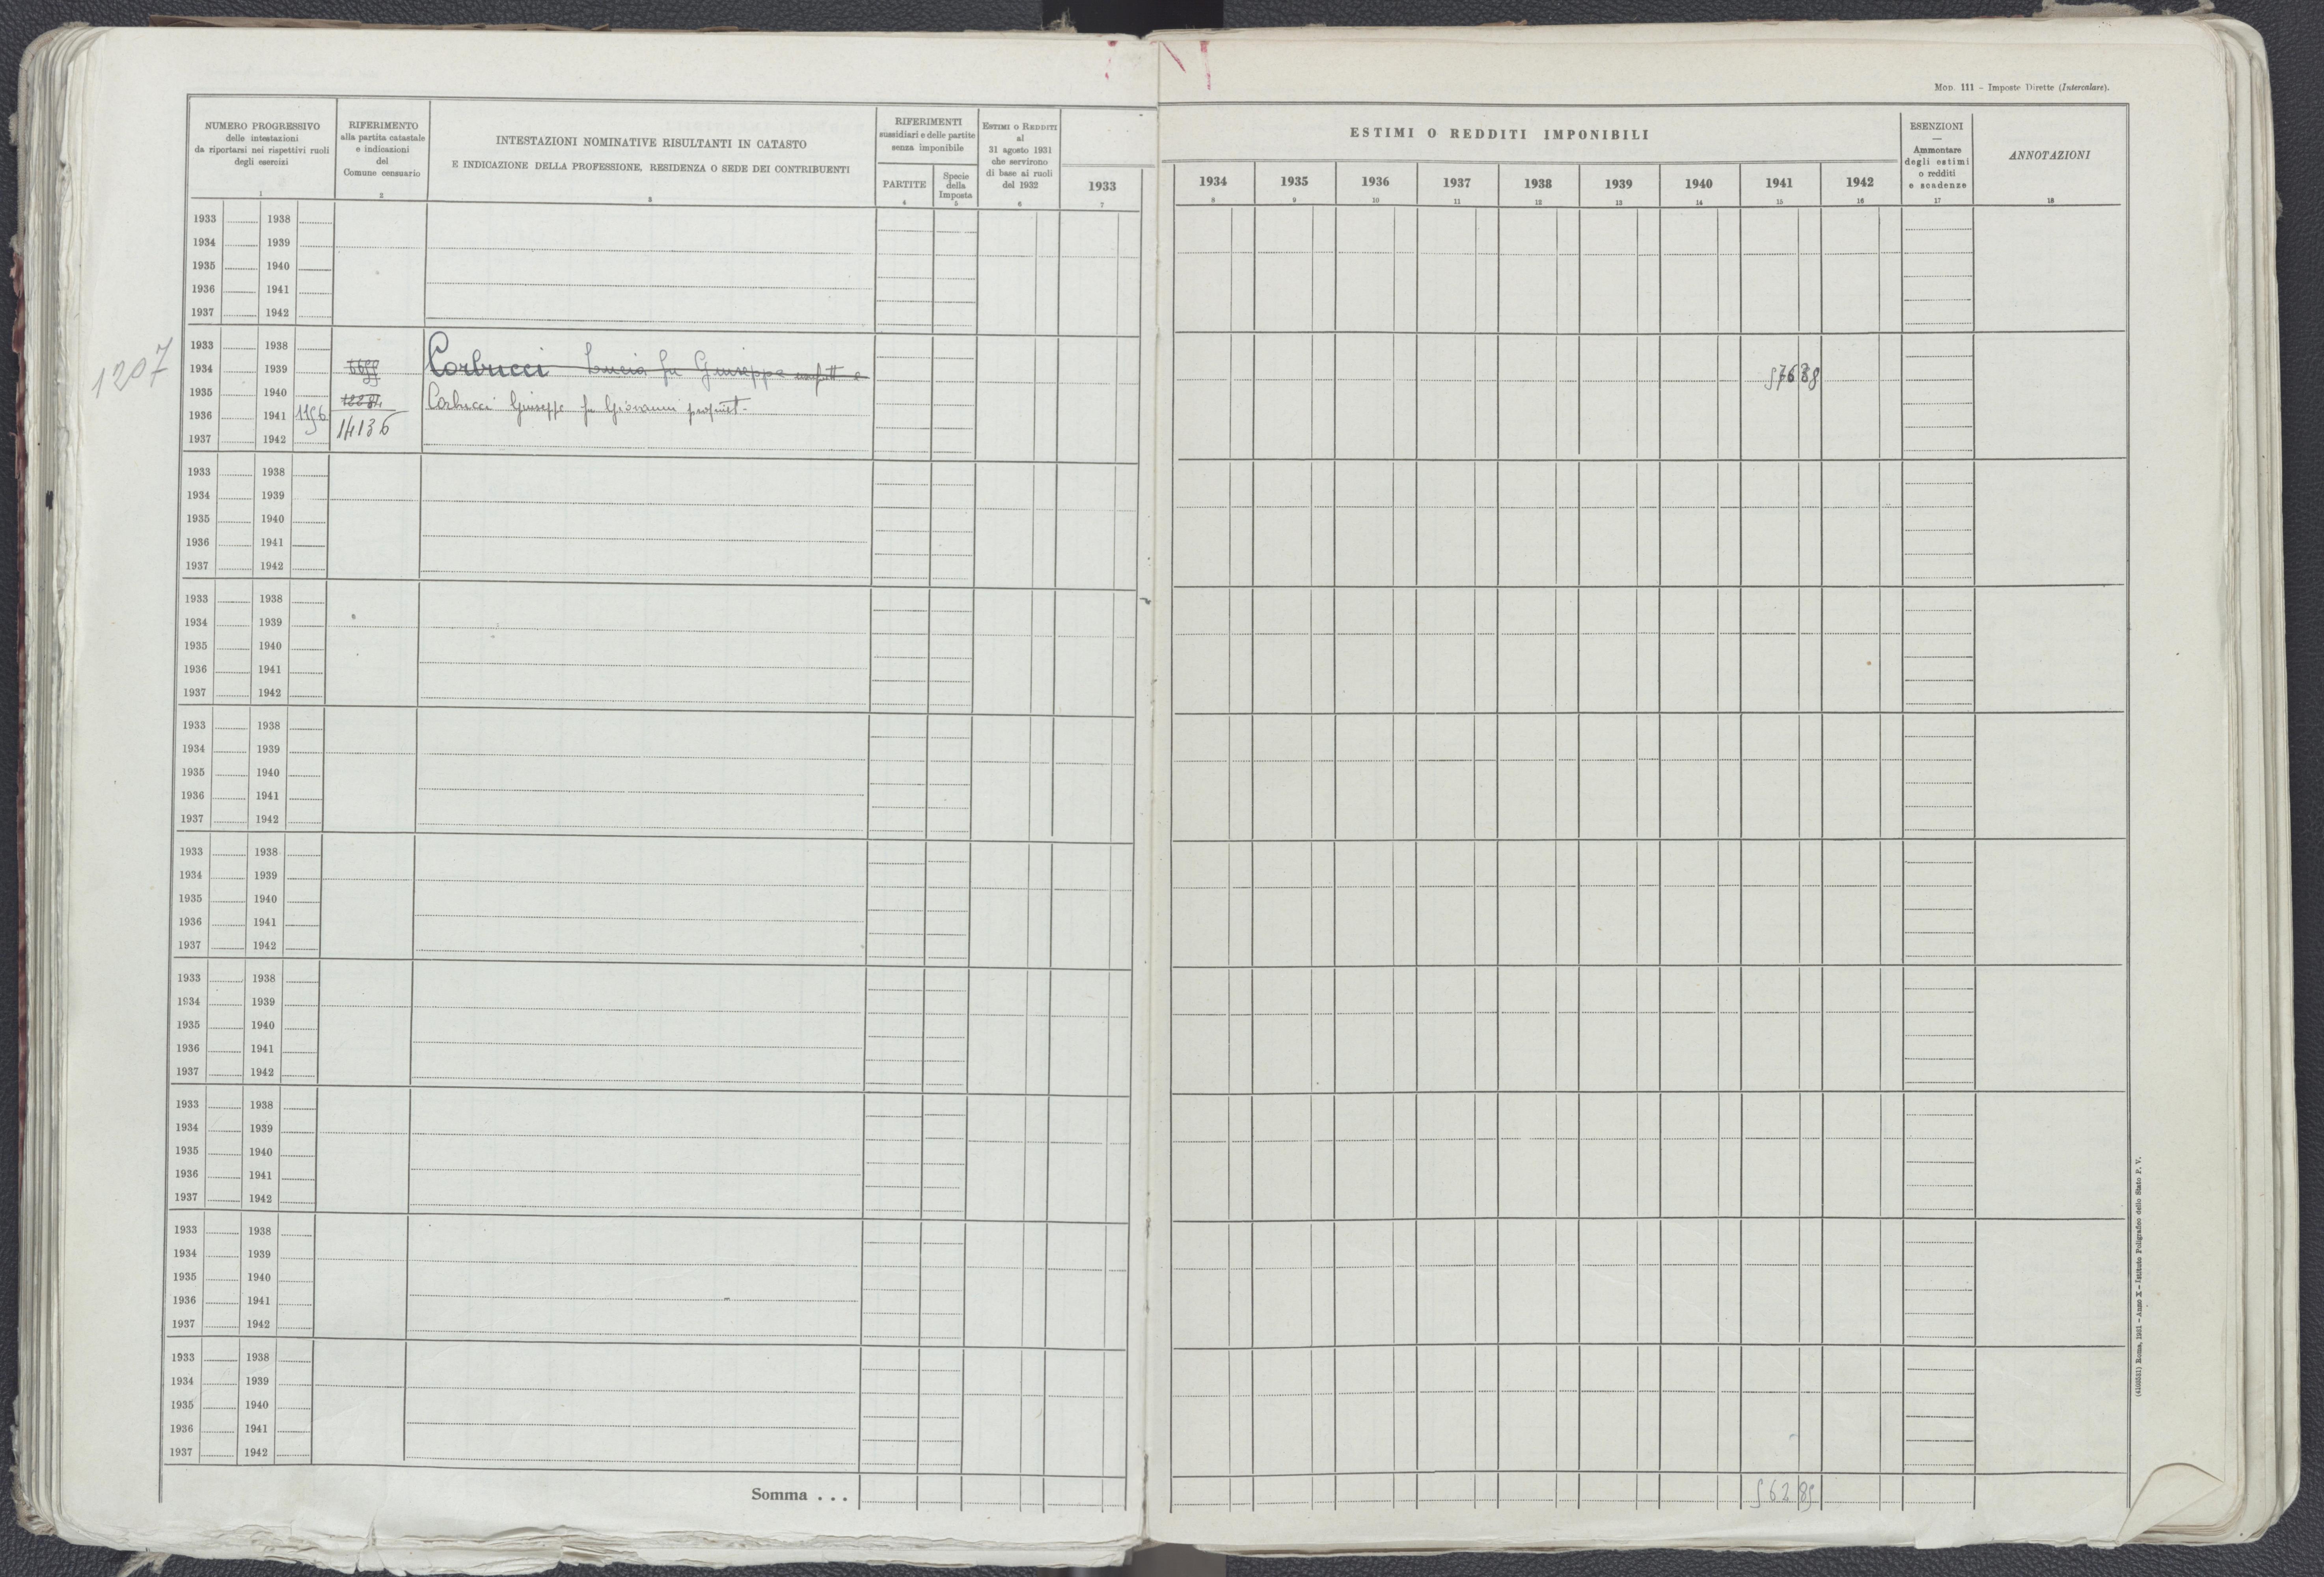 MOD. 111 - Imposte Dirette (Intercalare).
NUMERO PROGRESSIVO
delle intestazioni
da riportarsi nei rispettivi ruoli
degli esercizi
1
RIFERIMENTO
alla partita catastale
e indicazioni
del
Comune censuario
2
INTESTAZIONI NOMINATIVE RISULTANTI IN CATASTO
E INDICAZIONE DELLA PROFESSIONE, RESIDENZA O SEDE DEI CONTRIBUENTI
3
RIFERIMENTI
sussidiari e delle partite
senza imponibile
PARTITE
4
Specie
della
Imposta
5
ESTIMI O REDDITI
al
31 agosto 1931
che servirono
di base ai ruoli
del 1932
6
1933
7
ESTIMI O REDDITI IMPONIBILI
1934 1935 1936 1937 1938 1939 1940 1941 1942
8 9 10 11 12 13 14 15 16
ESENZIONI
—
Ammontare
degli estimi
o redditi
e scadenze
17
ANNOTAZIONI
18
1933 1938
1934 1939
1935 1940
1936 1941
1937 1942
1207
1933 1938
1934 1939 Corbucci Lucia fu Giuseppe
1935 1940 Corbucci Giuseppe fu Giovanni propriet.
1936 1941 1156
1937 1942 14136
1933 1938
1934 1939
1935 1940
1936 1941
1937 1942
1933 1938
1934 1939
1935 1940
1936 1941
1937 1942
1933 1938
1934 1939
1935 1940
1936 1941
1937 1942
1933 1938
1934 1939
1935 1940
1936 1941
1937 1942
1933 1938
1934 1939
1935 1940
1936 1941
1937 1942
1933 1938
1934 1939
1935 1940
1936 1941
1937 1942
1933 1938
1934 1939
1935 1940
1936 1941
1937 1942
1933 1938
1934 1939
1935 1940
1936 1941
1937 1942
Somma . . . 562 85
Roma, 1931 - Anno X - Istituto Poligrafico dello Stato P. V.